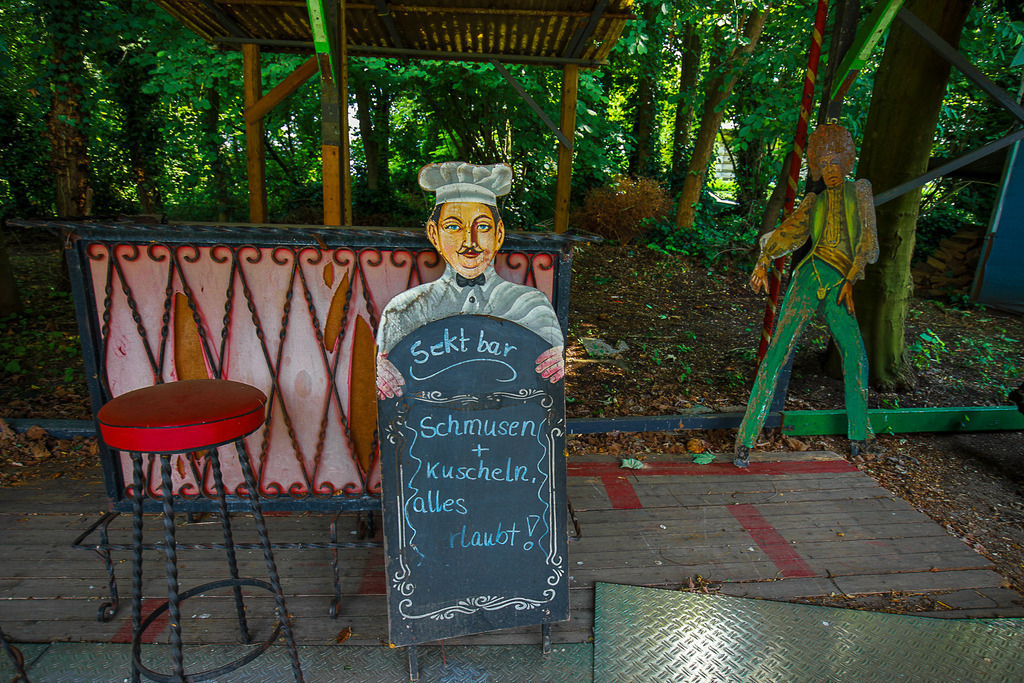 Sekt bar
Schmusen
+
Kuscheln,
alles
rlaubt!